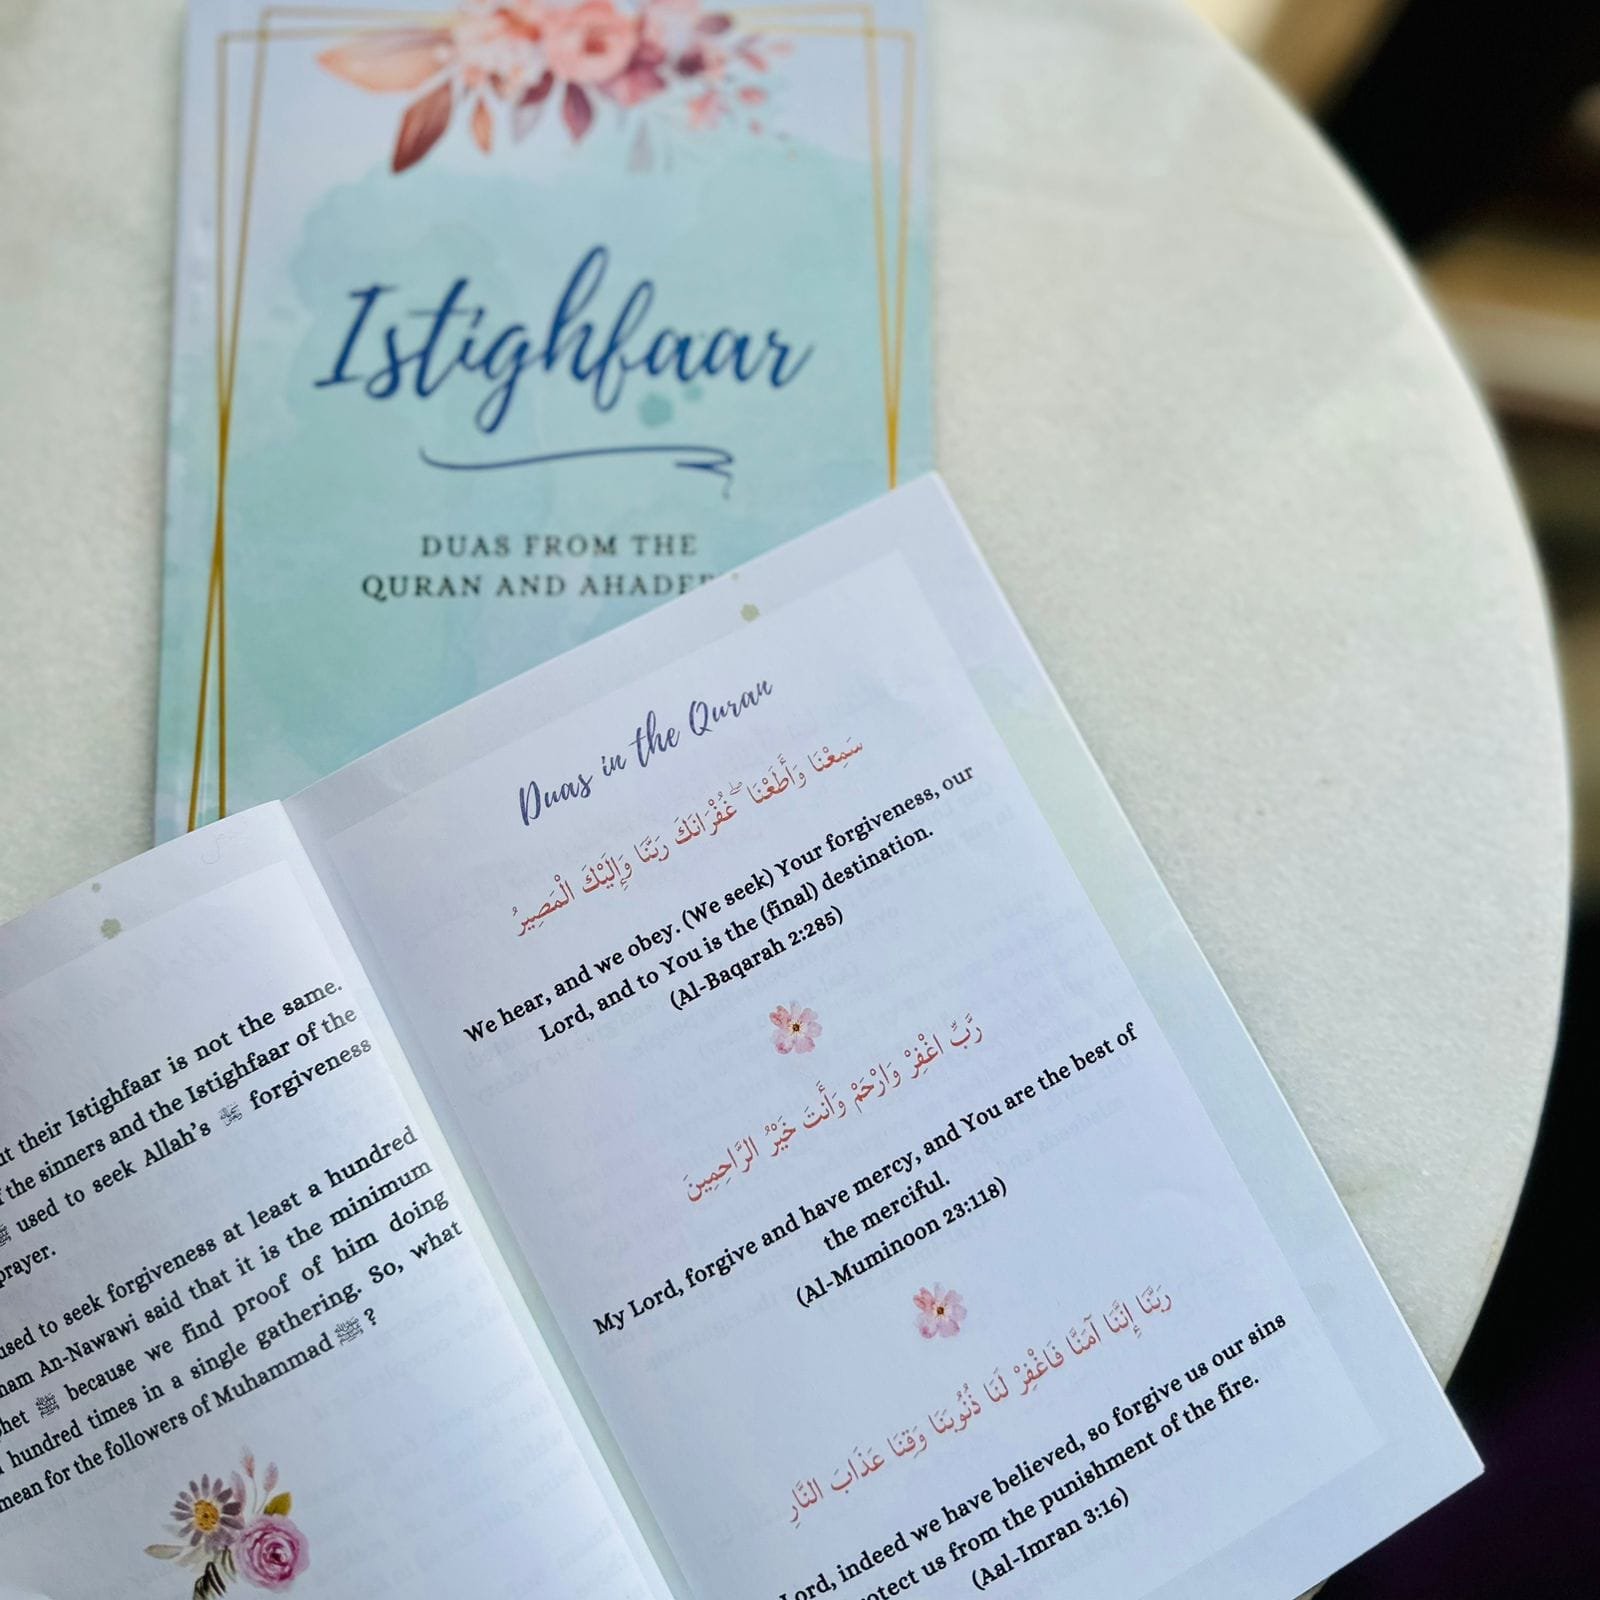 Istighfaar
DUAS FROM THE
QURAN AND
their Istighfaar is not the same.
the sinners and the Istighfaar of the
ﷺ used to seek Allah's ﷻ forgiveness
prayer.
used to seek forgiveness at least a hundred
An-Nawawi said that it is the minimum
ﷺ because we find proof of him doing
hundred times in a single gathering. So, what
mean for the followers of Muhammad ﷺ?
Duas in the Quran
سَمِعْنَا وَأَطَعْنَا ۖ غُفْرَانَكَ رَبَّنَا وَإِلَيْكَ الْمَصِيرُ
We hear, and we obey. (We seek) Your forgiveness, our
Lord, and to You is the (final) destination.
(Al-Baqarah 2:285)
رَّبِّ اغْفِرْ وَارْحَمْ وَأَنتَ خَيْرُ الرَّاحِمِينَ
My Lord, forgive and have mercy, and You are the best of
the merciful.
(Al-Muminoon 23:118)
رَبَّنَا إِنَّنَا آمَنَّا فَاغْفِرْ لَنَا ذُنُوبَنَا وَقِنَا عَذَابَ النَّارِ
Lord, indeed we have believed, so forgive us our sins
us from the punishment of the fire.
(Aal-Imran 3:16)